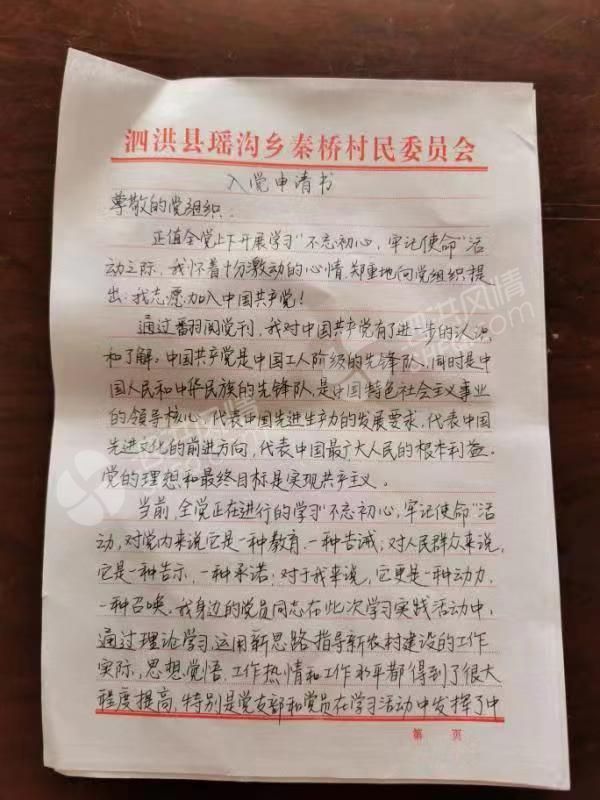 泗洪县瑶沟乡秦桥村民委员会
入党申请书
尊敬的党组织:
正值全党上下开展学习"不忘初心,牢记使命"活
动之际,我怀着十分激动的心情,郑重地向党组织提
出:我志愿加入中国共产党!
通过翻阅党刊,我对中国共产党有了进一步的认识
和了解。中国共产党是中国工人阶级的先锋队,同时是中
国人民和中华民族的先锋队,是中国特色社会主义事业
的领导核心,代表中国先进生产力的发展要求,代表中国
先进文化的前进方向,代表中国最广大人民的根本利益。
党的理想和最终目标是实现共产主义。
当前,全党正在进行的学习"不忘初心,牢记使命"活
动,对党内来说它是一种教育,一种告诫;对人民群众来说,
它是一种告示,一种承诺;对于我来说,它更是一种动力,
一种召唤。我身边的党员同志在此次学习实践活动中,
通过理论学习,运用新思路指导新农村建设的工作
实际,思想觉悟,工作热情和工作水平都得到了很大
程度提高,特别是党支部和党员在学习活动中发挥了中
第 页
泗洪风情